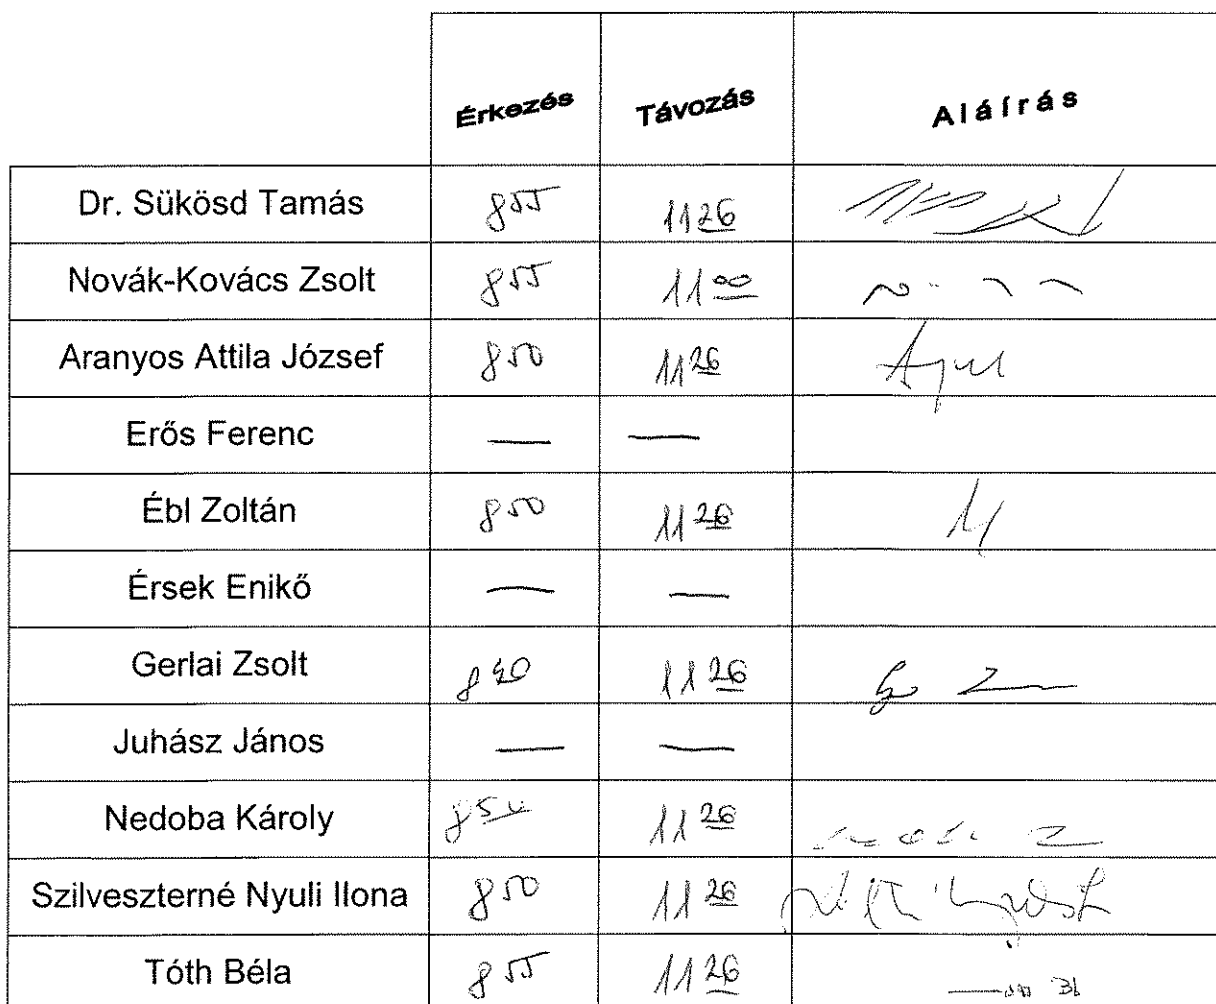 Érkezés Távozás Aláírás
Dr. Sükösd Tamás 855 1126
Novák-Kovács Zsolt 855 1100
Aranyos Attila József 850 1126
Erős Ferenc — —
Ébl Zoltán 850 1126
Érsek Enikő — —
Gerlai Zsolt 1126
Juhász János — —
Nedoba Károly 1126
Szilveszterné Nyuli Ilona 850 1126
Tóth Béla 855 1126